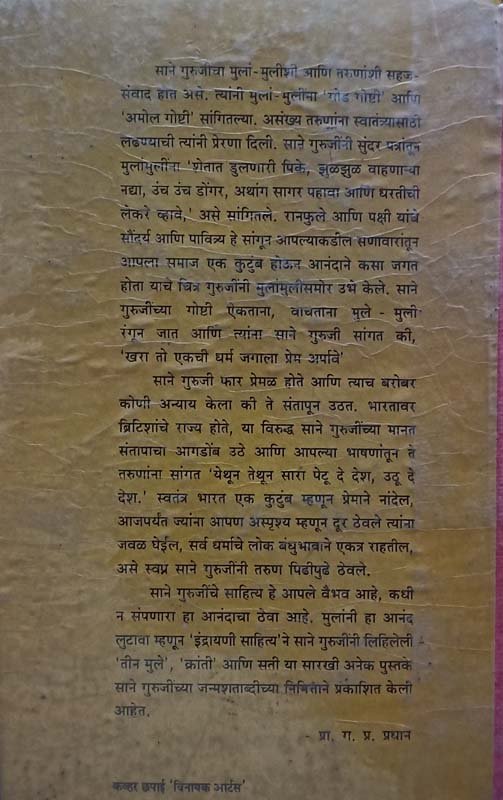 साने गुरुजींचा मुलां-मुलींशी आणि तरुणांशी सहज-
संवाद होत असे. त्यांनी मुलां-मुलींना 'गोड गोष्टी' आणि
'अमोल गोष्टी' सांगितल्या. असंख्य तरुणांना स्वातंत्र्यासाठी
लढण्याची त्यांनी प्रेरणा दिली. साने गुरुजींनी सुंदर पत्रांतून
मुलांमुलींना 'शेतात डुलणारी पिके, झुळझुळ वाहणाऱ्या
नद्या, उंच उंच डोंगर, अथांग सागर पहावा आणि धरतीची
लेकरे व्हावे,' असे सांगितले. रानफुले आणि पक्षी यांचे
सौंदर्य आणि पावित्र्य हे सांगून आपल्याकडील सणावारांतून
आपला समाज एक कुटुंब होऊन आनंदाने कसा जगत
होता याचे चित्र गुरुजींनी मुलांमुलींसमोर उभे केले. साने
गुरुजींच्या गोष्टी ऐकताना, वाचताना मुले - मुली
रंगून जात आणि त्यांना साने गुरुजी सांगत की,
'खरा तो एकची धर्म जगाला प्रेम अर्पावे'
साने गुरुजी फार प्रेमळ होते आणि त्याच बरोबर
कोणी अन्याय केला की ते संतापून उठत. भारतावर
ब्रिटिशांचे राज्य होते, या विरुद्ध साने गुरुजींच्या मनात
संतापाचा आगडोंब उठे आणि आपल्या भाषणांतून ते
तरुणांना सांगत 'येथून तेथून सारा पेटू दे देश, उठू दे
देश.' स्वतंत्र भारत एक कुटुंब म्हणून प्रेमाने नांदेल,
आजपर्यंत ज्यांना आपण अस्पृश्य म्हणून दूर ठेवले त्यांना
जवळ घेईल, सर्व धर्माचे लोक बंधुभावाने एकत्र राहतील,
असे स्वप्न साने गुरुजींनी तरुण पिढीपुढे ठेवले.
साने गुरुजींचे साहित्य हे आपले वैभव आहे, कधी
न संपणारा हा आनंदाचा ठेवा आहे. मुलांनी हा आनंद
लुटावा म्हणून 'इंद्रायणी साहित्य'ने साने गुरुजींनी लिहिलेली -
'तीन मुले', 'क्रांती' आणि सती या सारखी अनेक पुस्तके
साने गुरुजींच्या जन्मशताब्दीच्या निमित्ताने प्रकाशित केली
आहेत.
- प्रा. ग. प्र. प्रधान
कव्हर छपाई 'विनायक आर्टस'